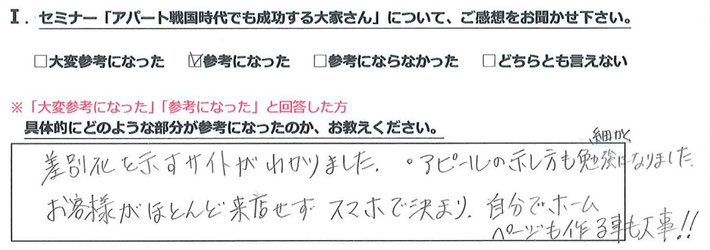 I. セミナー「アパート戦国時代でも成功する大家さん」について、ご感想をお聞かせ下さい。
□大変参考になった ☑参考になった □参考にならなかった □どちらとも言えない
※「大変参考になった」「参考になった」と回答した方
具体的にどのような部分が参考になったのか、お教えください。
差別化を示すサイトがわかりました。・アピールの示し方も細かく勉強になりました
お客様がほとんど来店せず スマホで決まり、自分でホーム
ページも作る事も大事!!